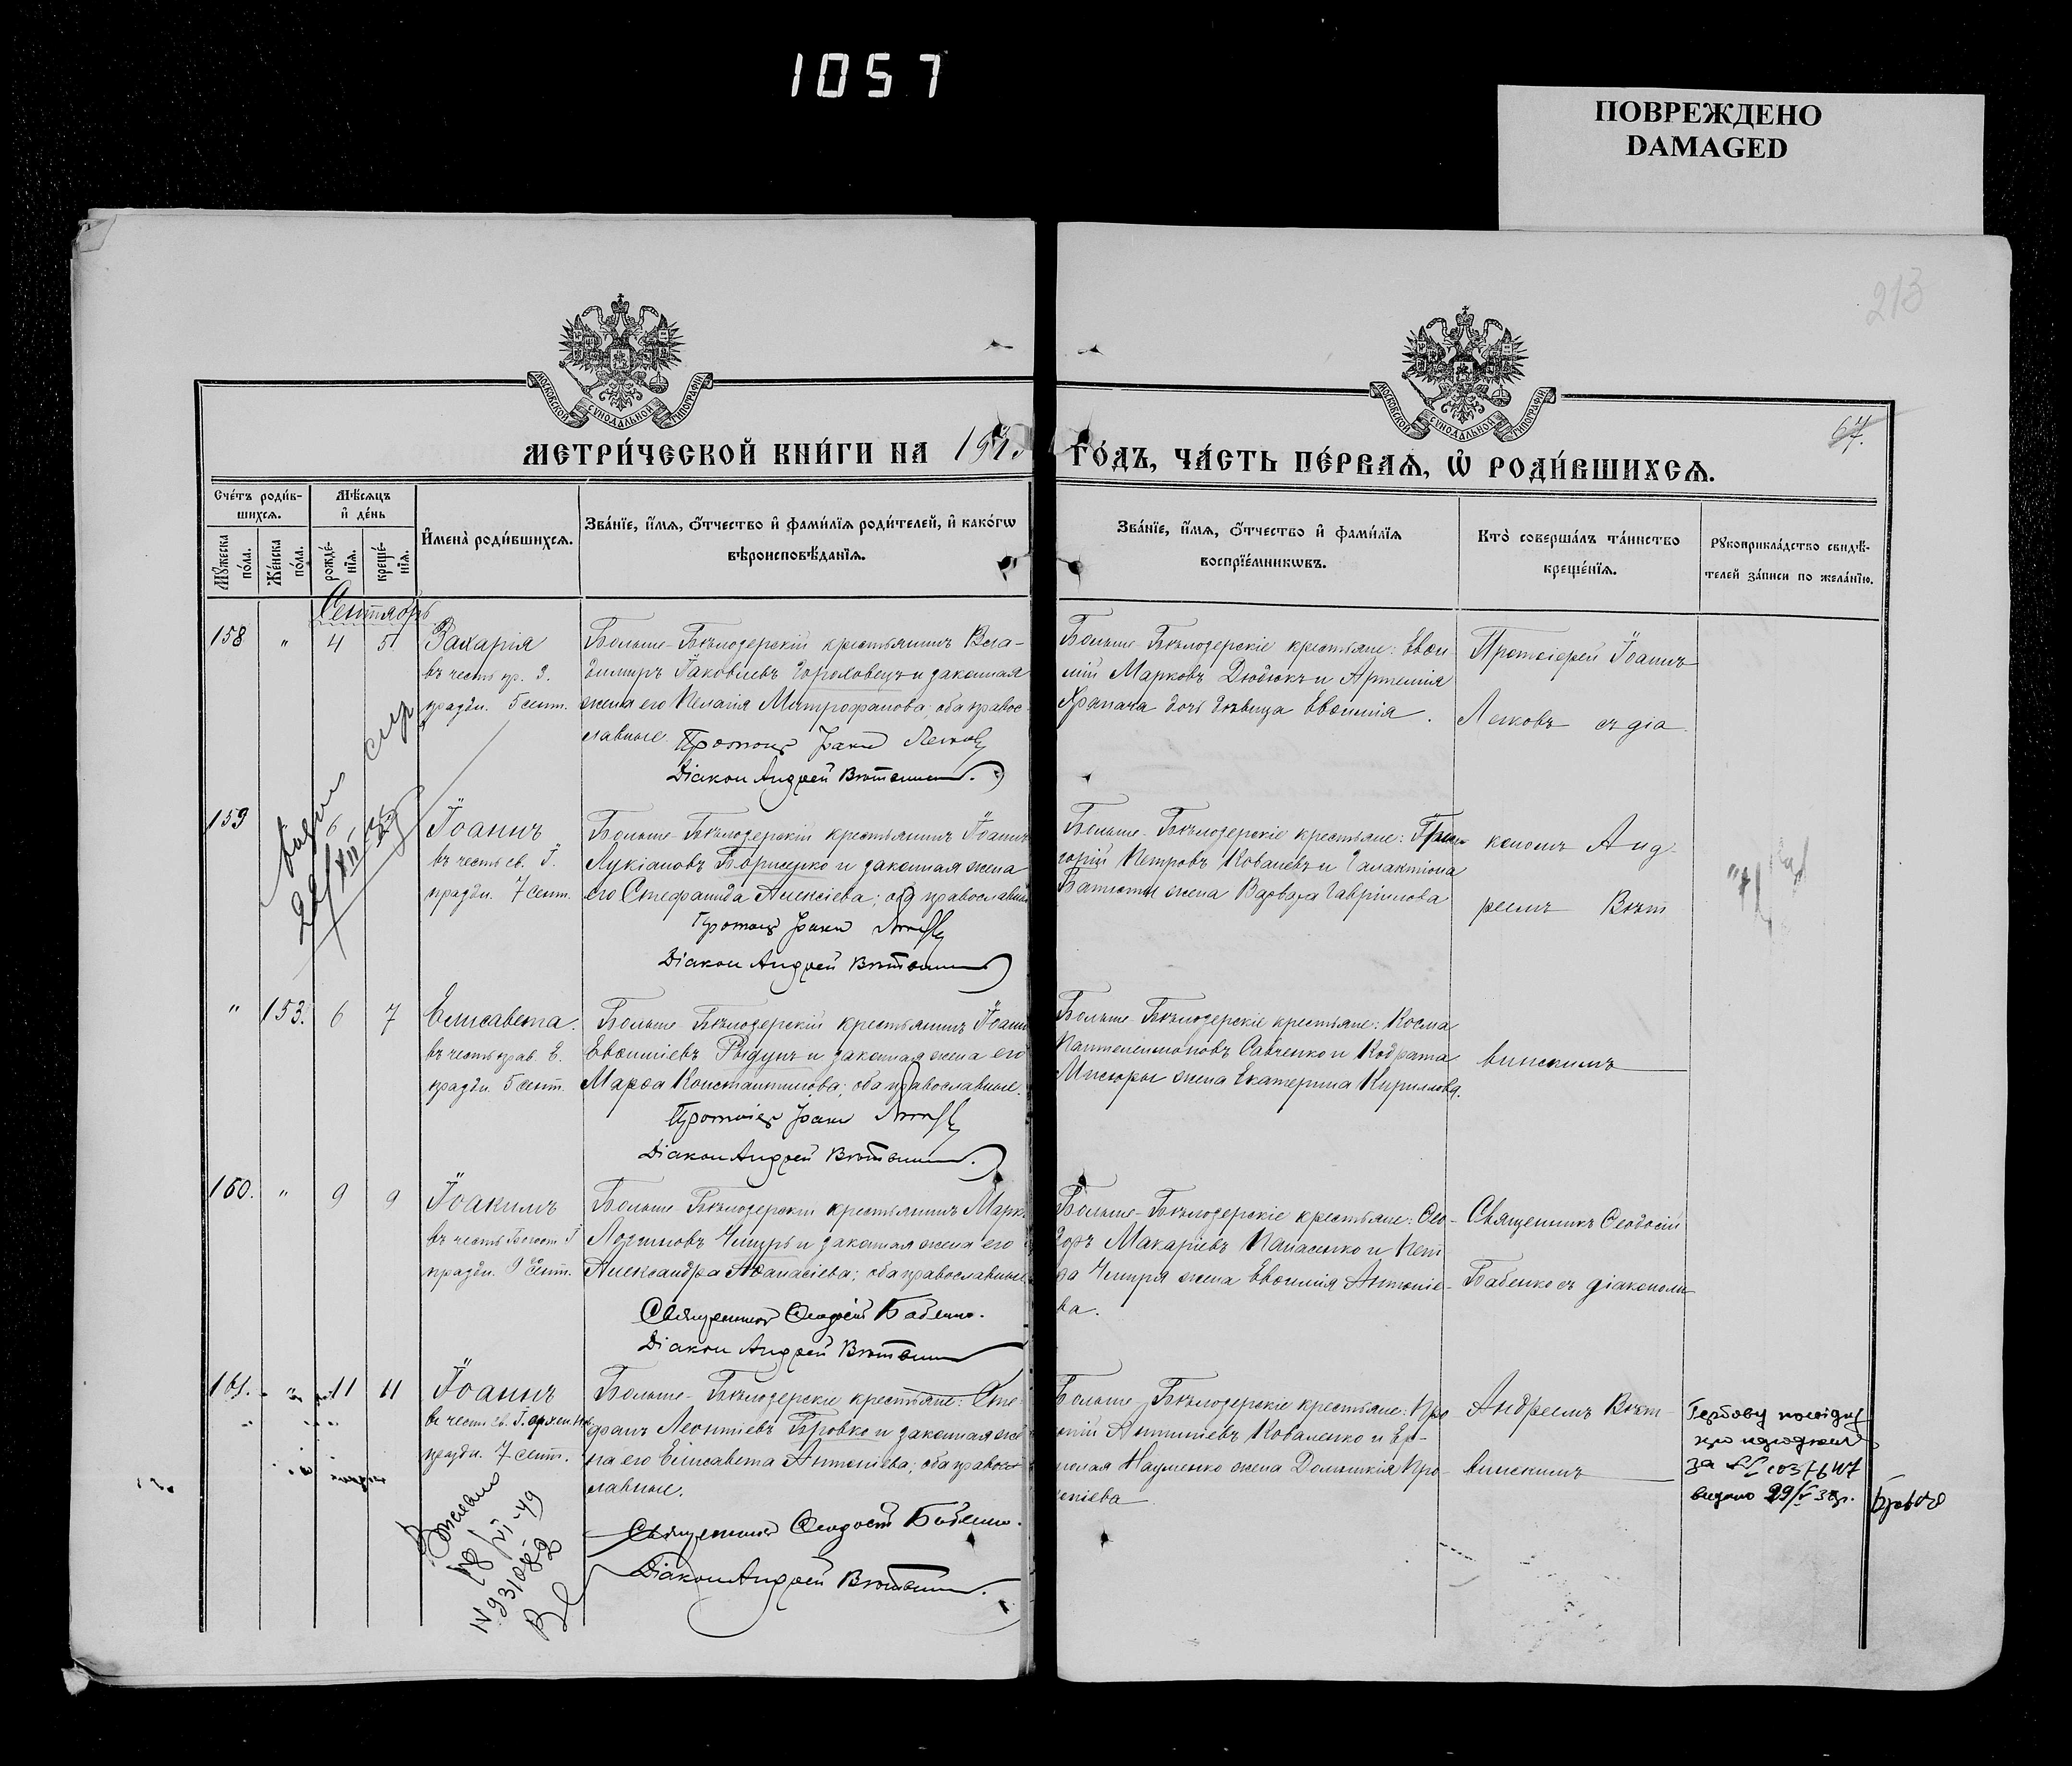 1057
ПОВРЕЖДЕНО
DAMAGED
213
МОСКОВСКОЙ СѴНОДАЛЬНОЙ ТИПОГРАФІИ
МОСКОВСКОЙ СѴНОДАЛЬНОЙ ТИПОГРАФІИ
67.
МЕТРИ́ЧЕСКОЙ КНИ́ГИ НА 191
ГО́ДЪ, ЧА́СТЬ ПЕ́РВАѦ, Ѡ҆ РОДИ́ВШИХСѦ.
Сче́тъ роди́в-
шихсѧ.
Мѣ́сѧцъ
и҆ де́нь
Мꙋ́жеска
по́ла.
Же́нска
по́ла.
рожде́-
нїѧ.
креще́-
нїѧ.
И҆мена̀ роди́вшихсѧ.
Зва́нїе, и҆́мѧ, ѻ҆́тчество и҆ фами́лїѧ роди́телей, и҆ како́гѡ
вѣроисповѣ́данїѧ.
Зва́нїе, и҆́мѧ, ѻ҆́тчество и҆ фами́лїѧ
воспрїе́мникѡвъ.
Кто̀ соверша́лъ та́инство
креще́нїѧ.
Рꙋкоприкла́дство свидѣ́-
телей за́писи по жела́нїю.
Сентябрь
158 " 4 5 Захарія
въ честь пр. З.
праздн. 5 сент.
Больше-Бѣлозерскій крестьянинъ Вла-
димиръ Іаковлевъ Гороховецъ и законная
жена его Пелагія Митрофанова; оба правос-
лавные. Протоіер Іоанн Легков
Діакон Андрей
Больше-Бѣлозерскіе крестьяне: Евѳи-
мій Марковъ Дюдюкъ и Артемія
Храпача дочь дѣвица Евѳимія.
Протоіерей Іоаннъ
Легковъ съ діа
159 6
Іоаннъ
въ честь св. І.
праздн. 7 сент.
Больше-Бѣлозерскій крестьянинъ Іоаннъ
Лукіановъ Борисенко и законная жена
его Стефанида Алексіева; оба православные
Протоіер Іоанн
Діакон Андрей
Больше-Бѣлозерскіе крестьяне: Гри-
горій Петровъ Ковалевъ и Галактіона
жена Варвара Гавріилова
кономъ Анд-
реемъ Вѣт
" 153. 6 7 Елисавета.
въ честь прав. Е.
праздн. 5 сент.
Больше-Бѣлозерскій крестьянинъ Іоаннъ
Евѳиміевъ Рыдунъ и законная жена его
Марѳа Константинова; оба православные.
Протоіер Іоанн
Діакон Андрей
Больше-Бѣлозерскіе крестьяне: Косма
Пантелеимоновъ Савченко и Кодрата
Мисюры жена Екатерина Кириллова.
винскимъ
160. " 9 9 Іоакимъ
въ честь Богоот. І.
праздн. 9 сент.
Больше-Бѣлозерскій крестьянинъ Маркъ
Логиновъ Чмырь и законная жена его
Александра Аѳанасіева; оба православные
Священник Ѳеодосій Бабенко.
Діакон Андрей
Больше-Бѣлозерскіе крестьяне: Ѳео-
доръ Макаріевъ Папасенко и Пет
ра Чмиря жена Евѳимія Антоніе-
ва.
Священникъ Ѳеодосій
Бабенко съ діакономъ
161. " 11 11 Іоаннъ
въ честь св. І.
праздн. 7 сент.
Больше-Бѣлозерскіе крестьяне: Сте-
фанъ Леонтіевъ Бровко и законная же
на его Елисавета Антоніева; оба правос-
лавные.
Священник Ѳеодосій Бабенко.
Діакон Андрей
Больше-Бѣлозерскіе крестьяне: Про
Антипіевъ Коваленко и Ер-
Науменко жена Домникія Про-
Андреемъ Вѣт-
винскимъ
видано 29/V 38р.
18/VI-49